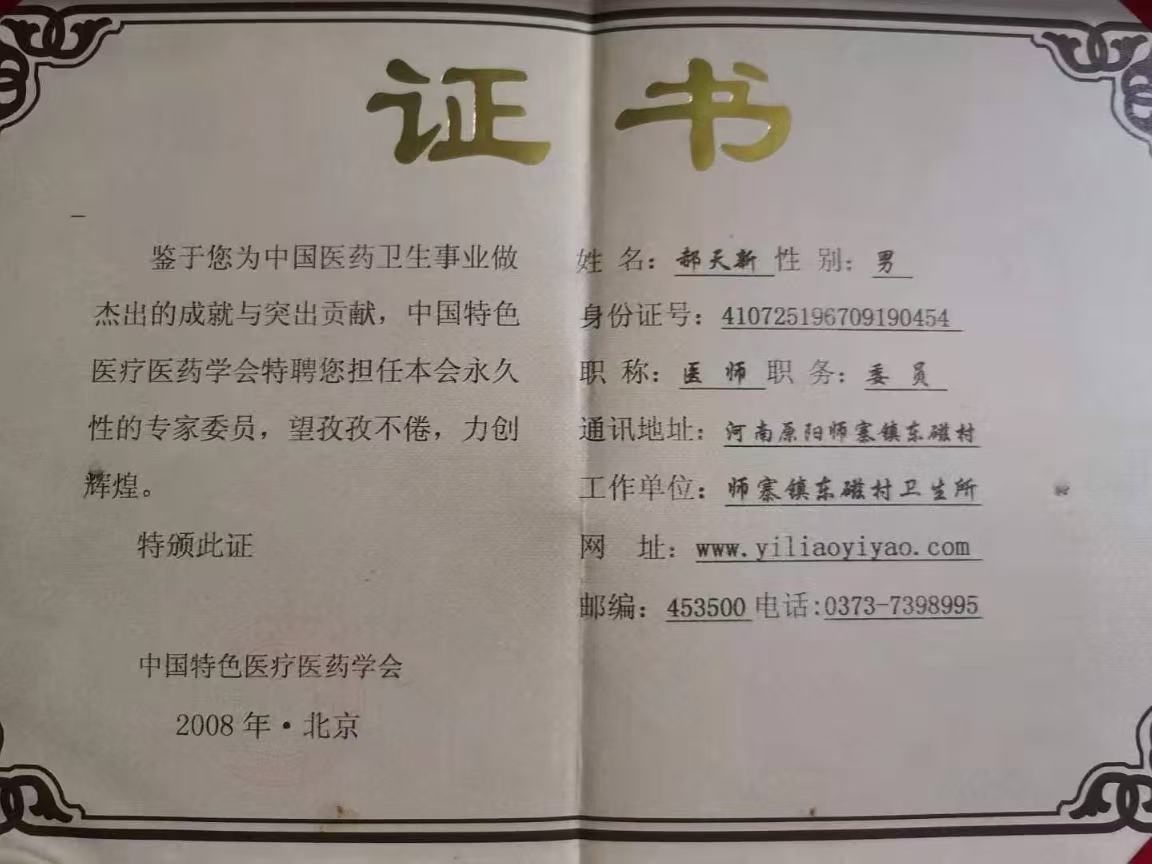 证书
鉴于您为中国医药卫生事业做
杰出的成就与突出贡献，中国特色
医疗医药学会特聘您担任本会永久
性的专家委员，望孜孜不倦，力创
辉煌。
特颁此证
中国特色医疗医药学会
2008年·北京
姓 名：郝天新 性 别：男
身份证号：410725196709190454
职 称：医 师 职 务：委 员
通讯地址：河南原阳师寨镇东磁村
工作单位：师寨镇东磁村卫生所
网 址：www.yiliaoyiyao.com
邮编：453500 电话:0373-7398995